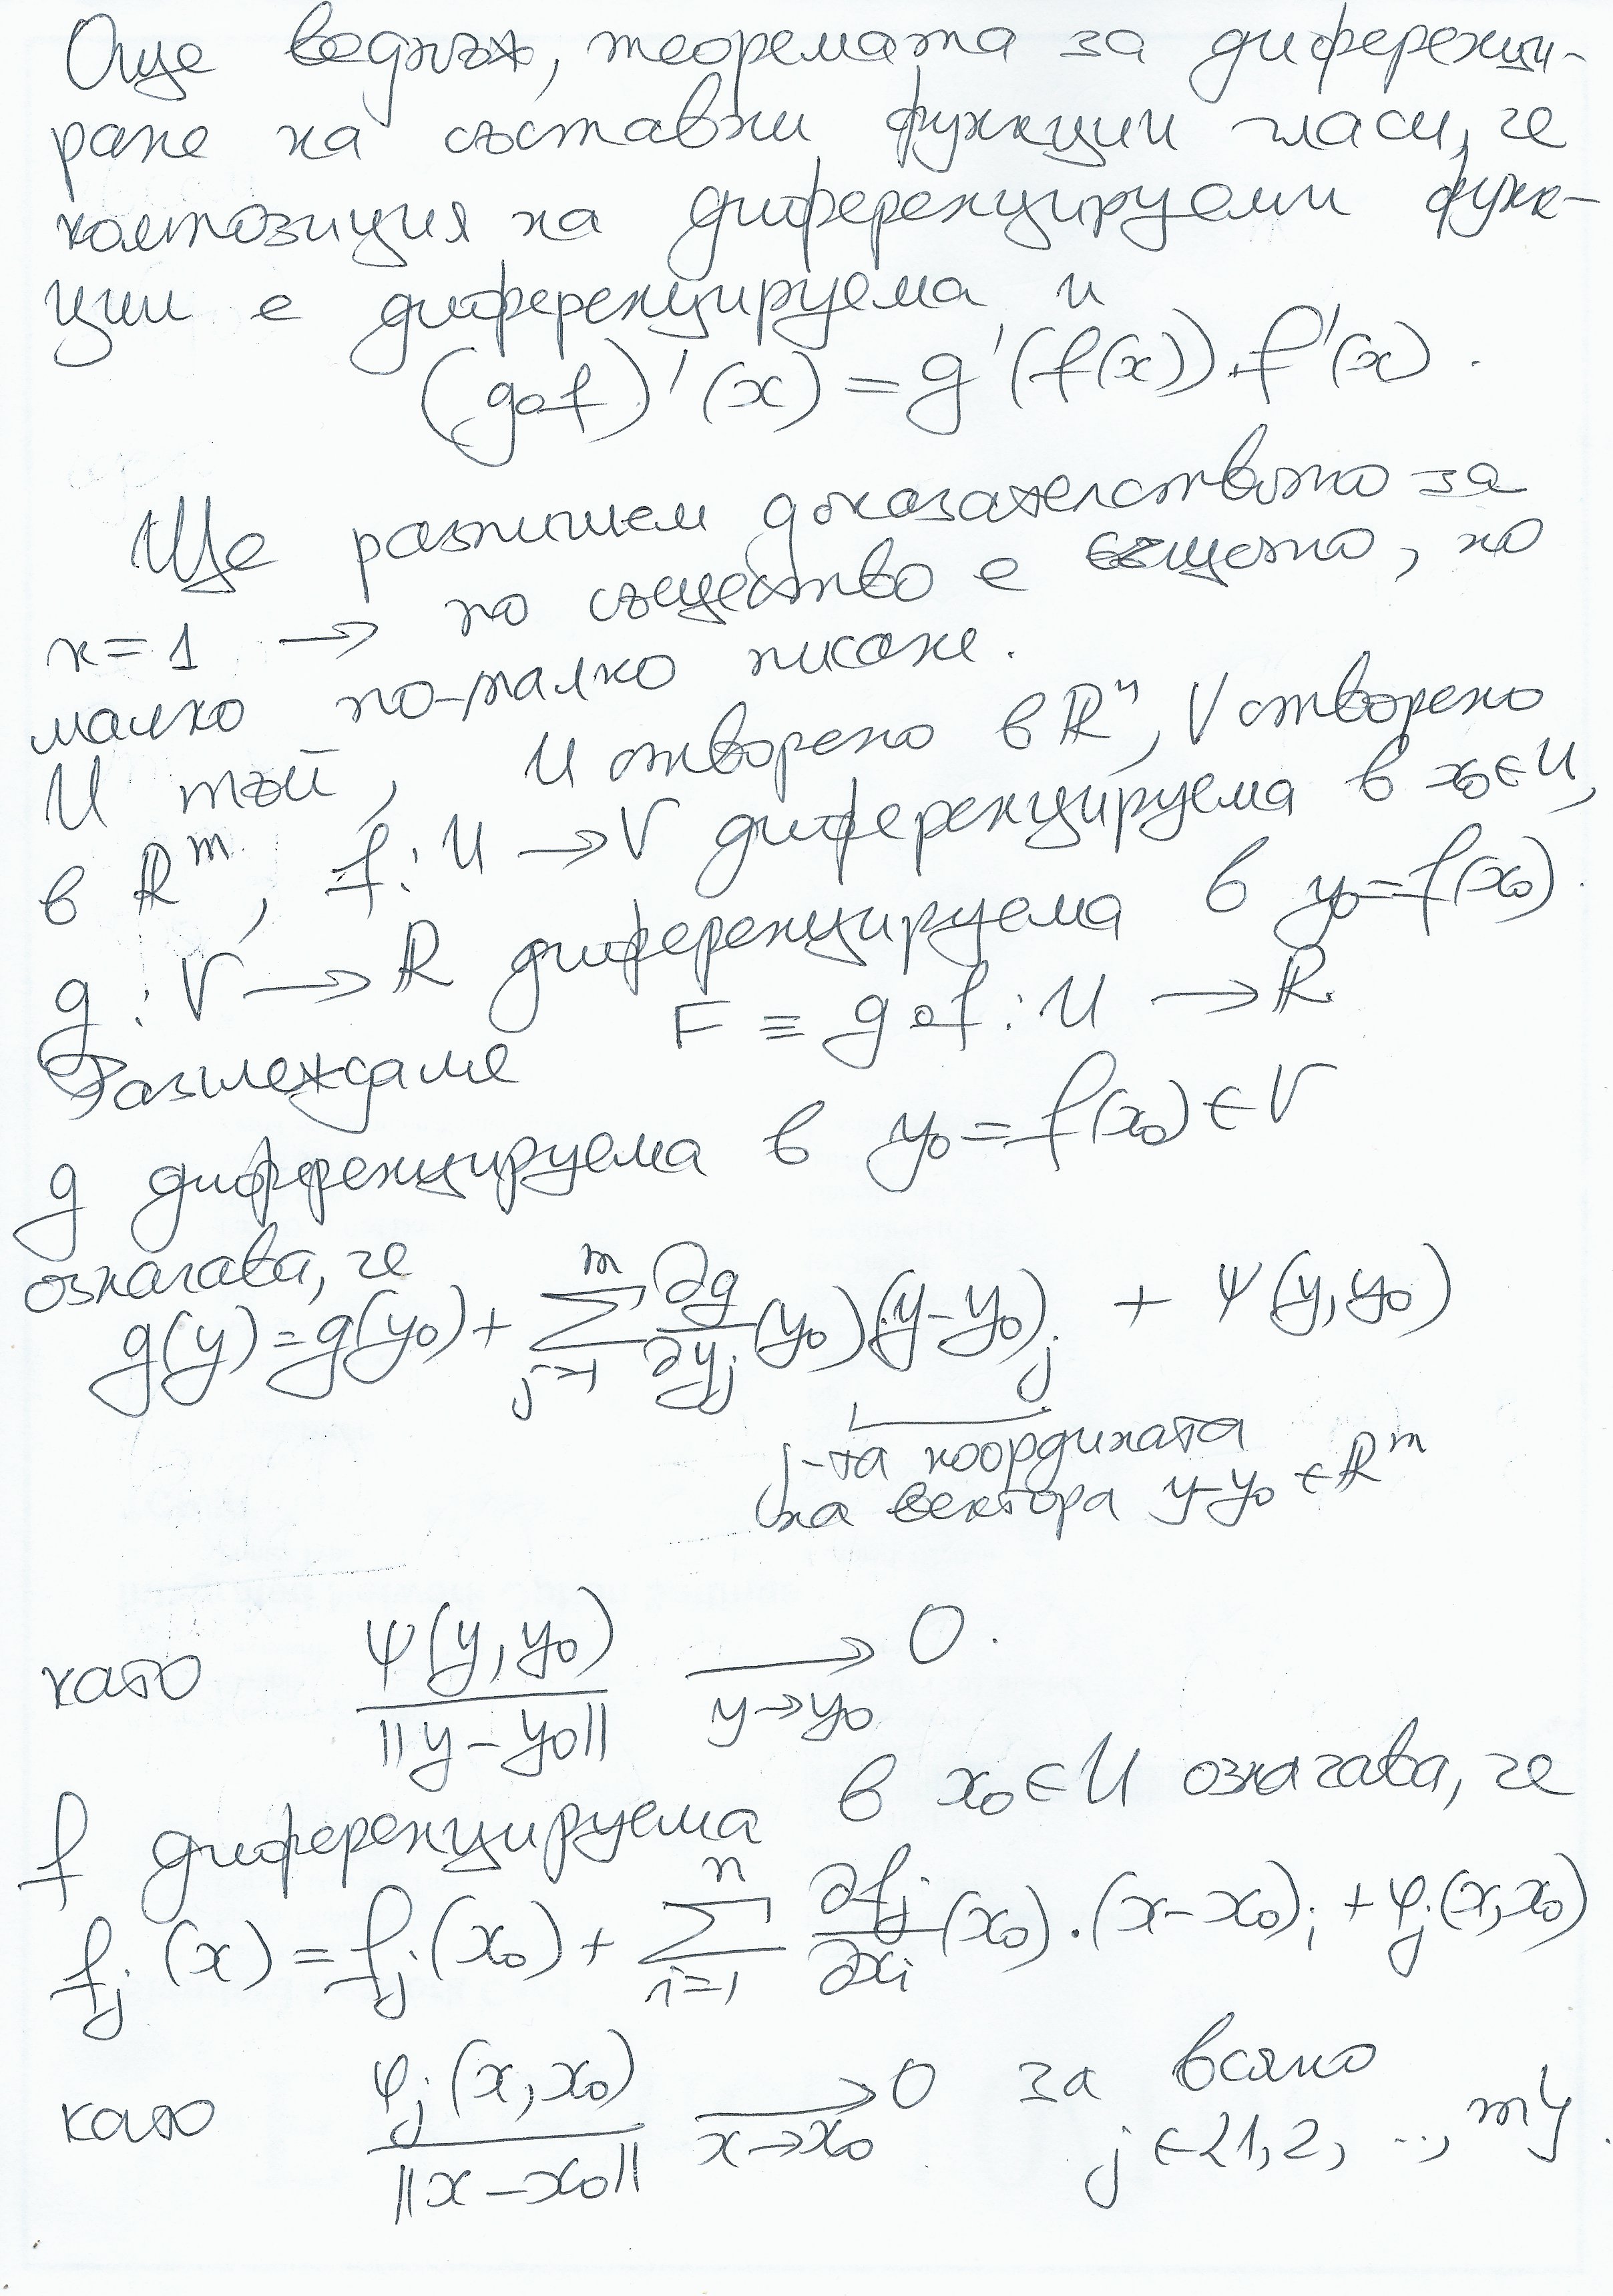 Още веднъж, теоремата за диференци-
ране на съставни функции гласи, че
композиция на диференцируеми функ-
ции е диференцируема и
(g∘f)'(x) = g'(f(x)).f'(x).
Ще разпишем доказателството за
k=1 → по същество е същото, но
малко по-малко писане.
И тъй, U отворено в ℝⁿ, V отворено
в ℝᵐ, f: U → V диференцируема в x₀∈U,
g: V → ℝ диференцируема в y₀=f(x₀).
Разглеждаме F ≡ g∘f : U → ℝ.
g диференцируема в y₀=f(x₀)∈V
означава, че
g(y)=g(y₀)+ ∑_{j=1}^{m} ∂g/∂y_j (y₀)(y-y₀)_j + ψ(y,y₀)
j-та координата
на вектора y-y₀∈ℝᵐ
като ψ(y,y₀)/||y-y₀|| →_{y→y₀} 0.
f диференцируема в x₀∈U означава, че
f_j(x)=f_j(x₀)+ ∑_{i=1}^{n} ∂f_j/∂x_i (x₀).(x-x₀)_i + φ_j(x,x₀)
като φ_j(x,x₀)/||x-x₀|| →_{x→x₀} 0 за всяко
j∈{1,2,...,m}.